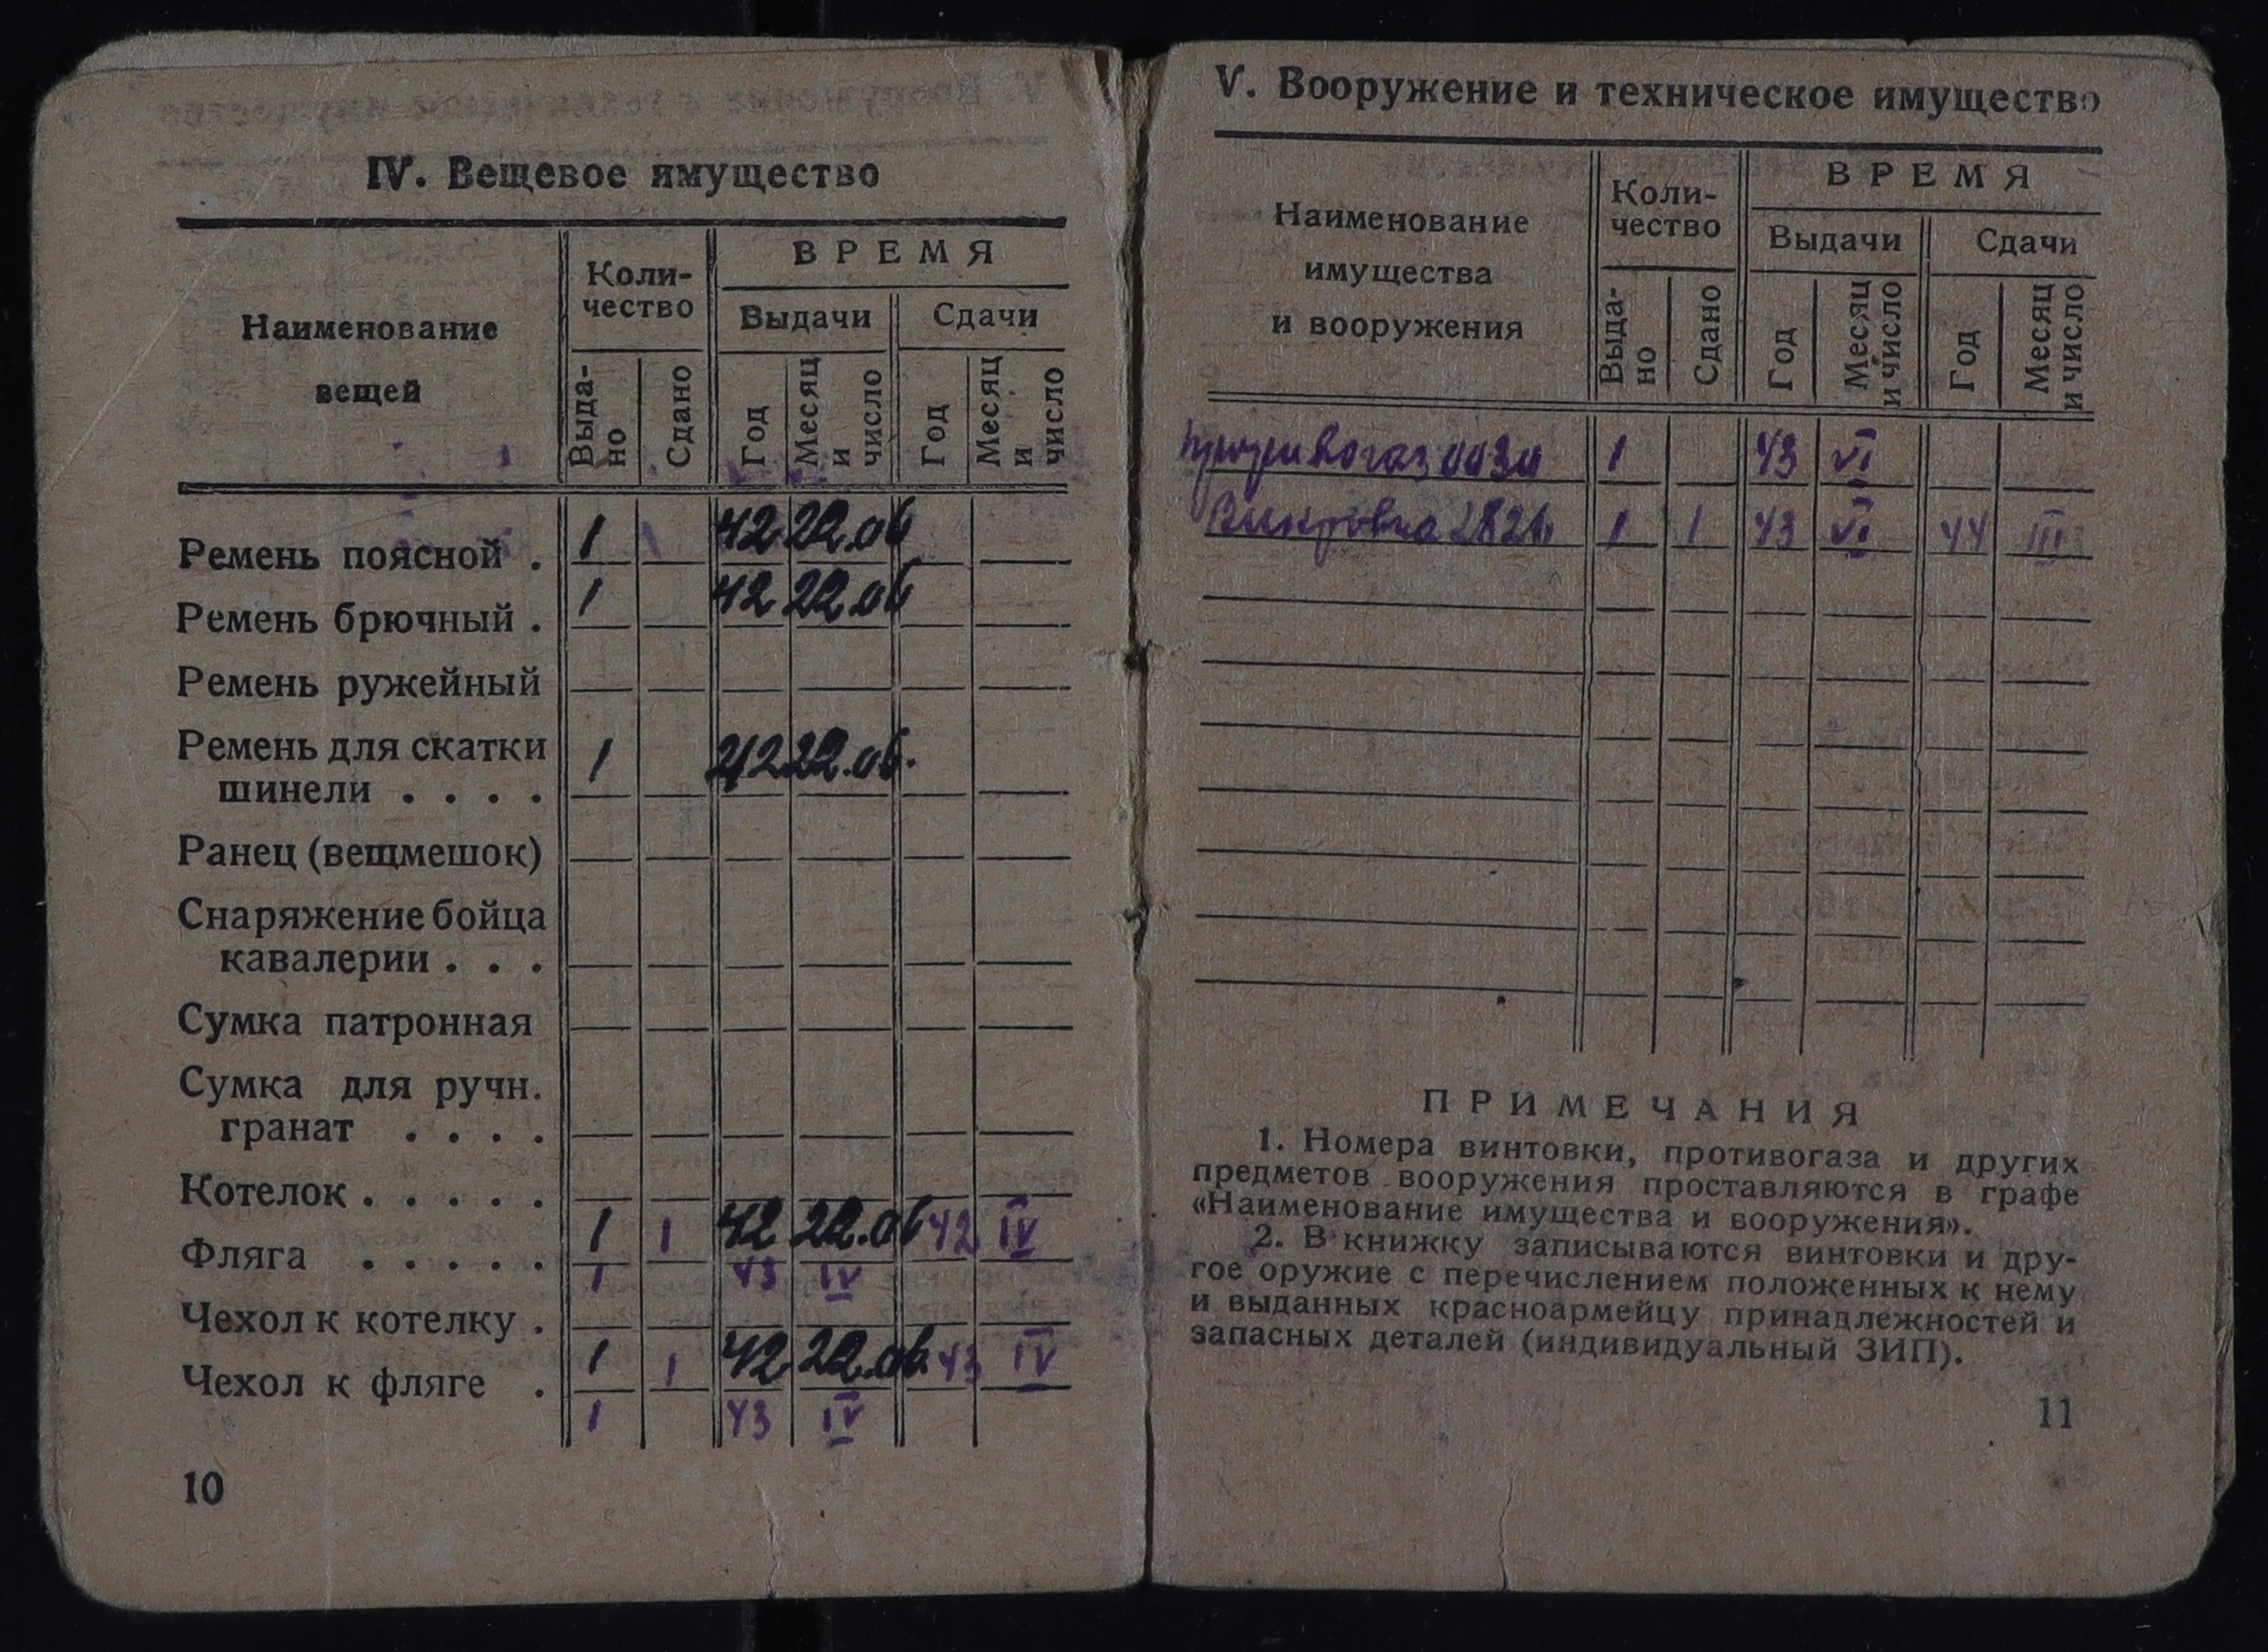 IV. Вещевое имущество
Наименование вещей
Коли-
чество
ВРЕМЯ
Выдачи
Сдачи
Выда-
но
Сдано
Год
Месяц и число
Год
Месяц и число
Ремень поясной . 1 42 22.06
Ремень брючный . 1 42 22.06
Ремень ружейный
Ремень для скатки
шинели . . . . 1 42 22.06.
Ранец (вещмешок)
Снаряжение бойца
кавалерии . . .
Сумка патронная
Сумка для ручн.
гранат . . . .
Котелок . . . . .
Фляга . . . . . 1 1 42 22.06 42 IV
1 43 IV
Чехол к котелку .
Чехол к фляге . 1 1 42 22.06. 43 IV
1 43 IV
10
V. Вооружение и техническое имущество
Наименование
имущества
и вооружения
Коли-
чество
ВРЕМЯ
Выдачи
Сдачи
Выда-
но
Сдано
Год
Месяц
и число
Год
Месяц
и число
противогаз 1 43 VI
Винтовка 1 1 43 VI 44 III
ПРИМЕЧАНИЯ
1. Номера винтовки, противогаза и других
предметов вооружения проставляются в графе
«Наименование имущества и вооружения».
2. В книжку записываются винтовки и дру-
гое оружие с перечислением положенных к нему
и выданных красноармейцу принадлежностей и
запасных деталей (индивидуальный ЗИП).
11